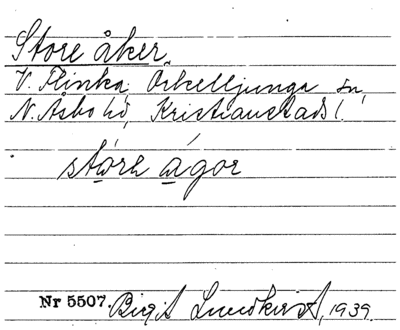 Store åker
V. Flinka, Örkelljunga sn,
N. Åsbo hd, Kristianstads l.
stórh ágor
Nr 5507. Birgit Lundkvist, 1939.